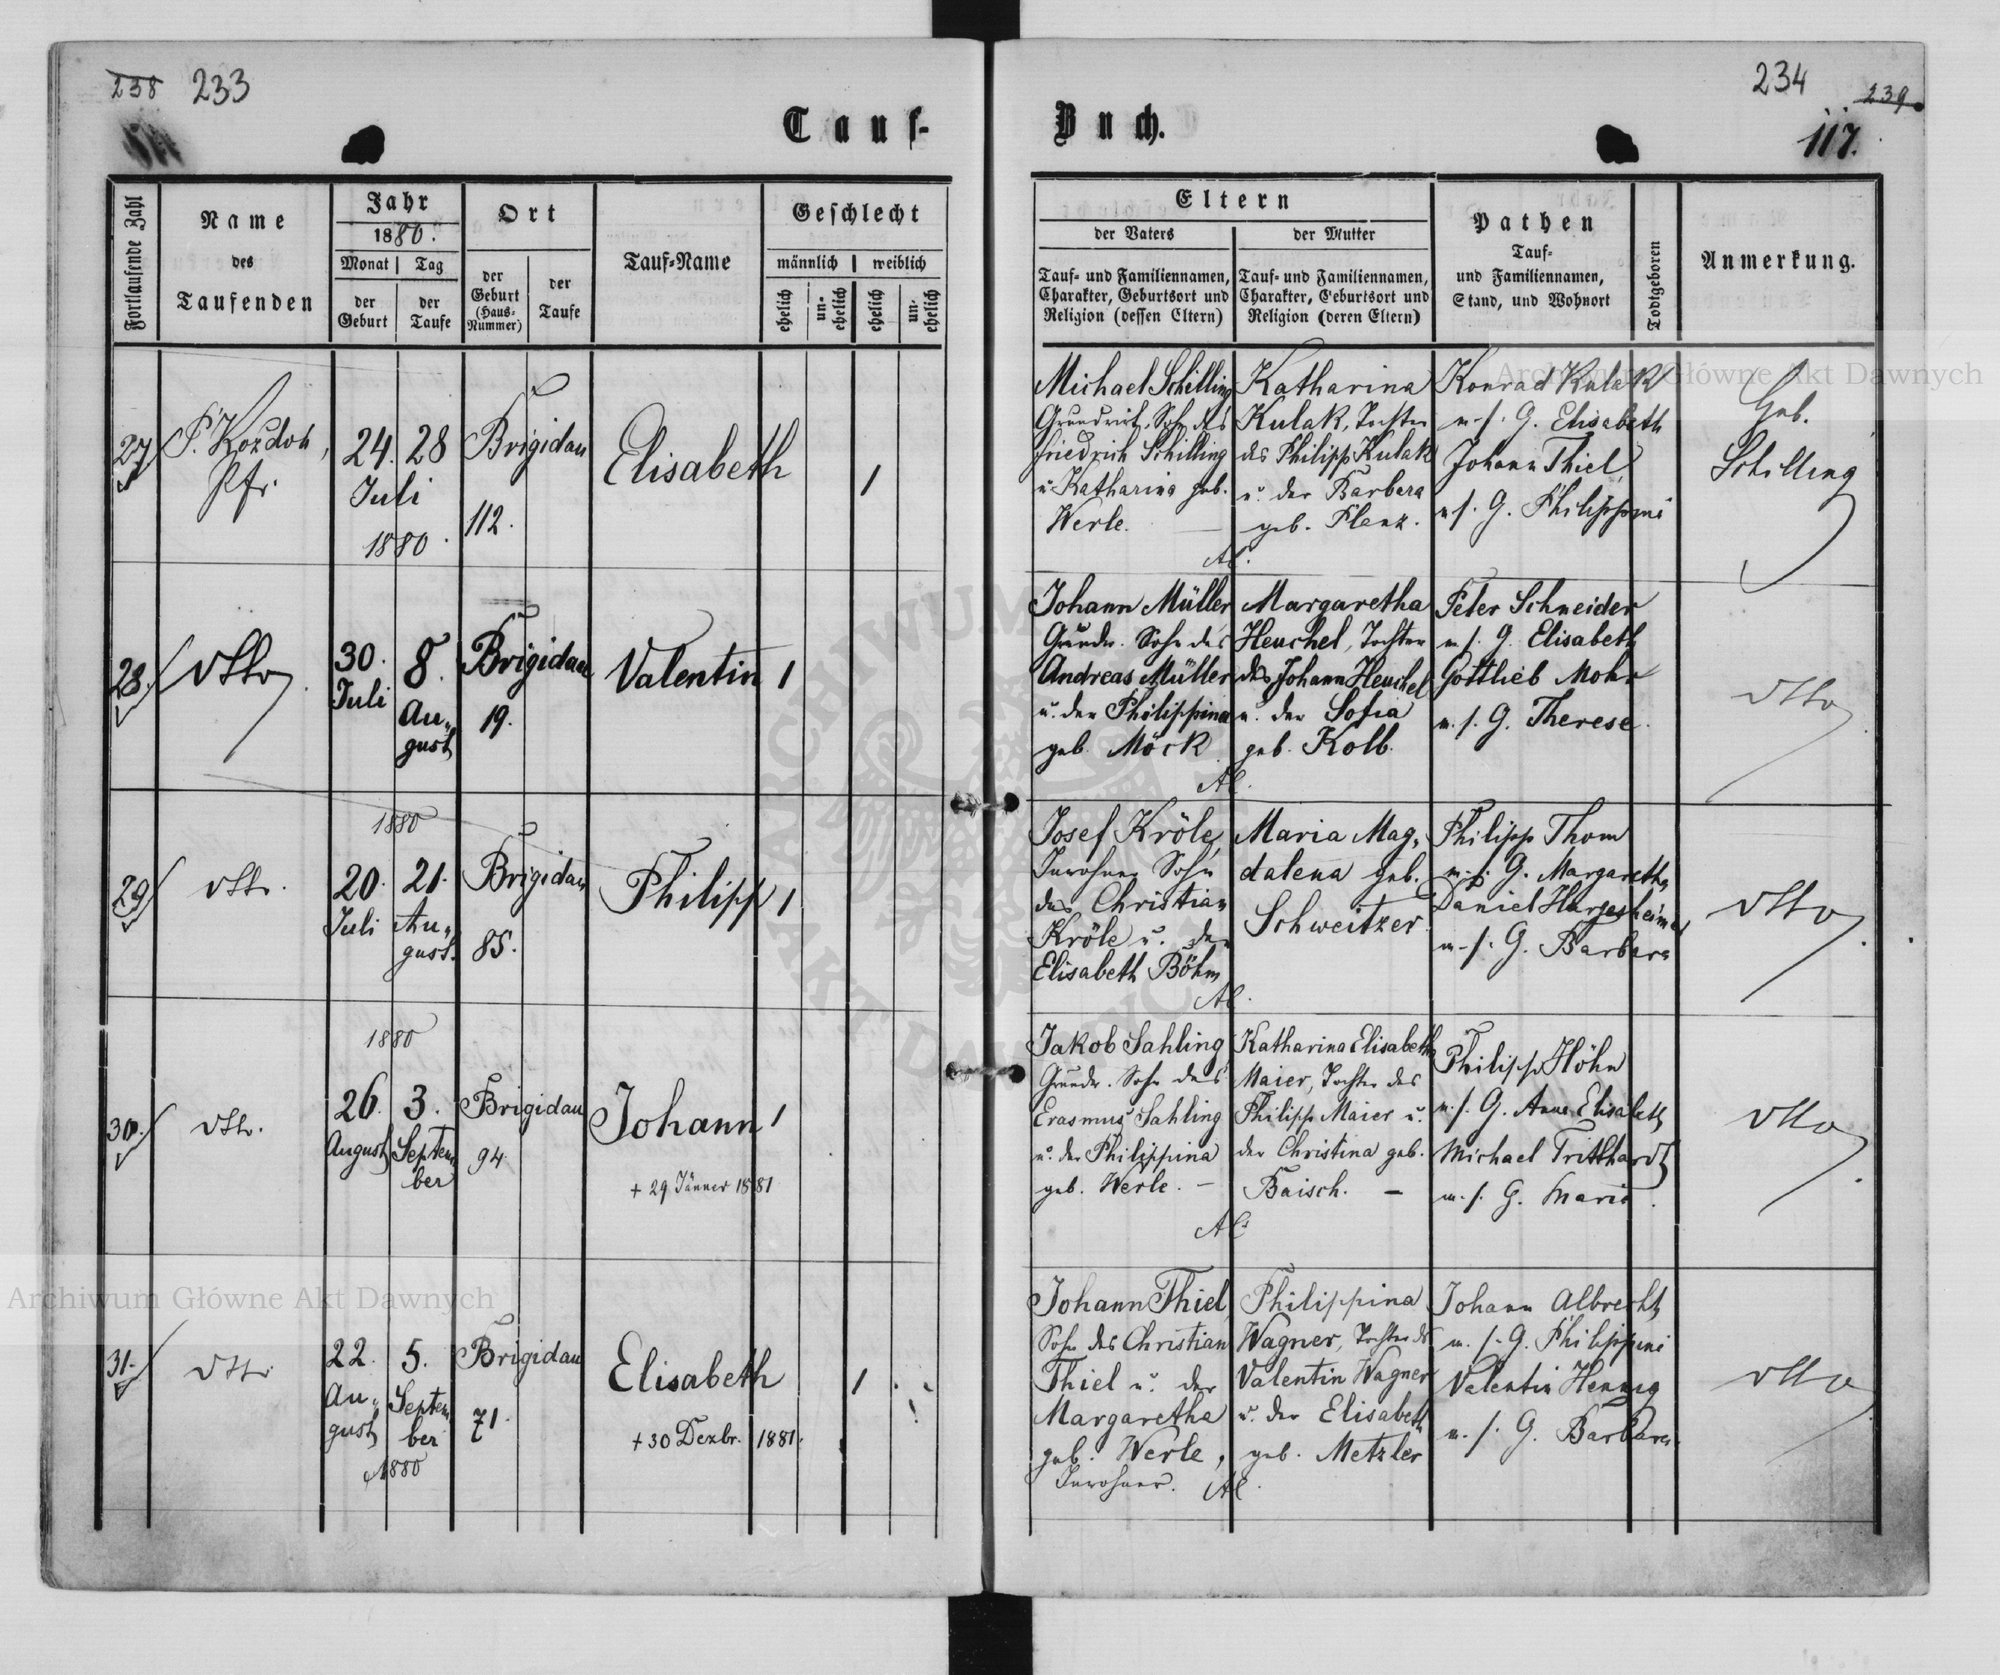 238 233
234 239
117.
Tauf-
Buch.
Fortlaufende Zahl
Name
des
Taufenden
Jahr
1880.
Monat | Tag
der
Geburt
der
Taufe
Ort
der
Geburt
(Haus-
Nummer)
der
Taufe
Tauf-Name
Geschlecht
männlich | weiblich
ehelich
un-
ehelich
ehelich
un-
ehelich
Eltern
der Vaters
der Mutter
Tauf- und Familiennamen,
Charakter, Geburtsort und
Religion (dessen Eltern)
Tauf- und Familiennamen,
Charakter, Geburtsort und
Religion (deren Eltern)
Pathen
Tauf-
und Familiennamen,
Stand, und Wohnort
Todtgeboren
Anmerkung.
27
Pfr.
24. 28
Juli
1880.
Brigidau
112.
Elisabeth
1
Michael Schilling
Grundwirt, Sohn des
Friedrich Schilling
u. Katharina geb.
Werle.
Katharina
Kulak, Tochter
des Philipp Kulak
u. der Barbara
geb. Flenz.
Konrad Kulak
m. s. G. Elisabeth
Johann Thiel
m. s. G. Philippini
Geb.
Schilling
28.
dtto
30.
Juli
8.
Au-
gust
Brigidau
19.
Valentin
1
Johann Müller
Grundw. Sohn des
Andreas Müller
u. der Philippina
geb. Möck
Margaretha
Heuchel, Tochter
des Johann Heuchel
u. der Sofia
geb. Kolb.
Peter Schneider
m. s. G. Elisabeth
Gottlieb Mohr
m. s. G. Therese.
dtto
29
dtto.
1880
20.
Juli
21.
Au-
gust.
Brigidau
85.
Philipp
1
Josef Kröle,
Inwohner Sohn
des Christian
Kröle u. der
Elisabeth Böhm
Maria Mag-
dalena geb.
Schweitzer.
Philipp Thom
m. s. G. Margaretha
Daniel Hargesheimer
m. s. G. Barbara
dtto
30.
dtto.
1880
26.
August
3.
Septem-
ber
Brigidau
94
Johann
1
+ 29 Jänner 1881
Jakob Sahling
Grundw. Sohn des
Erasmus Sahling
u. der Philippina
geb. Werle. –
Katharina Elisabeth
Maier, Tochter des
Philipp Maier u.
der Christina geb.
Baisch. –
Philipp Höhn
m. s. G. Anna Elisabeth
Michael Tritthardt
m. s. G. Maria.
dtto
31.
dtto
22.
Au-
gust
5.
Septem-
ber
1880
Brigidau
71.
Elisabeth
1
+ 30 Dezbr. 1881.
Johann Thiel,
Sohn des Christian
Thiel u. der
Margaretha
geb. Werle,
Inwohner.
Philippina
Wagner, Tochter des
Valentin Wagner
u. der Elisabeth
geb. Metzler
Johann Albrecht
m. s. G. Philippini
Valentin Hennig
m. s. G. Barbara
dtto
Archiwum Główne Akt Dawnych
Archiwum Główne Akt Dawnych